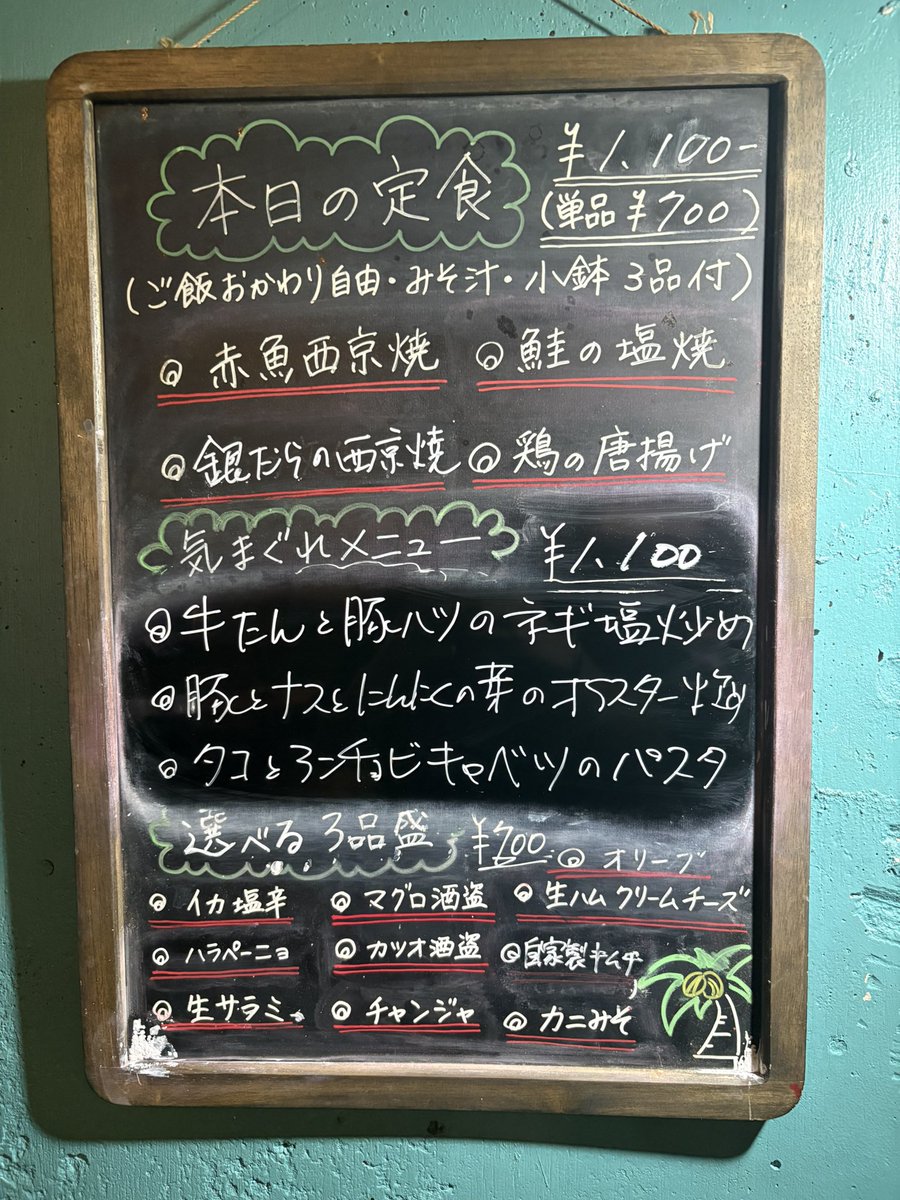 本日の定食 ¥1,100-
(単品 ¥700)
(ご飯おかわり自由・みそ汁・小鉢 3品付)
◎ 赤魚西京焼 ◎ 鮭の塩焼
◎ 銀だらの西京焼 ◎ 鶏の唐揚げ
気まぐれメニュー ¥1,100
◎ 牛たんと豚ハツのネギ塩炒め
◎ 豚とナスとにんにくの芽のオイスター炒め
◎ タコとアンチョビキャベツのパスタ
選べる 3品盛 ¥700 ◎ オリーブ
◎ イカ塩辛 ◎ マグロ酒盗 ◎ 生ハム クリームチーズ
◎ ハラペーニョ ◎ カツオ酒盗 ◎ 自家製キムチ
◎ 生サラミ ◎ チャンジャ ◎ カニみそ